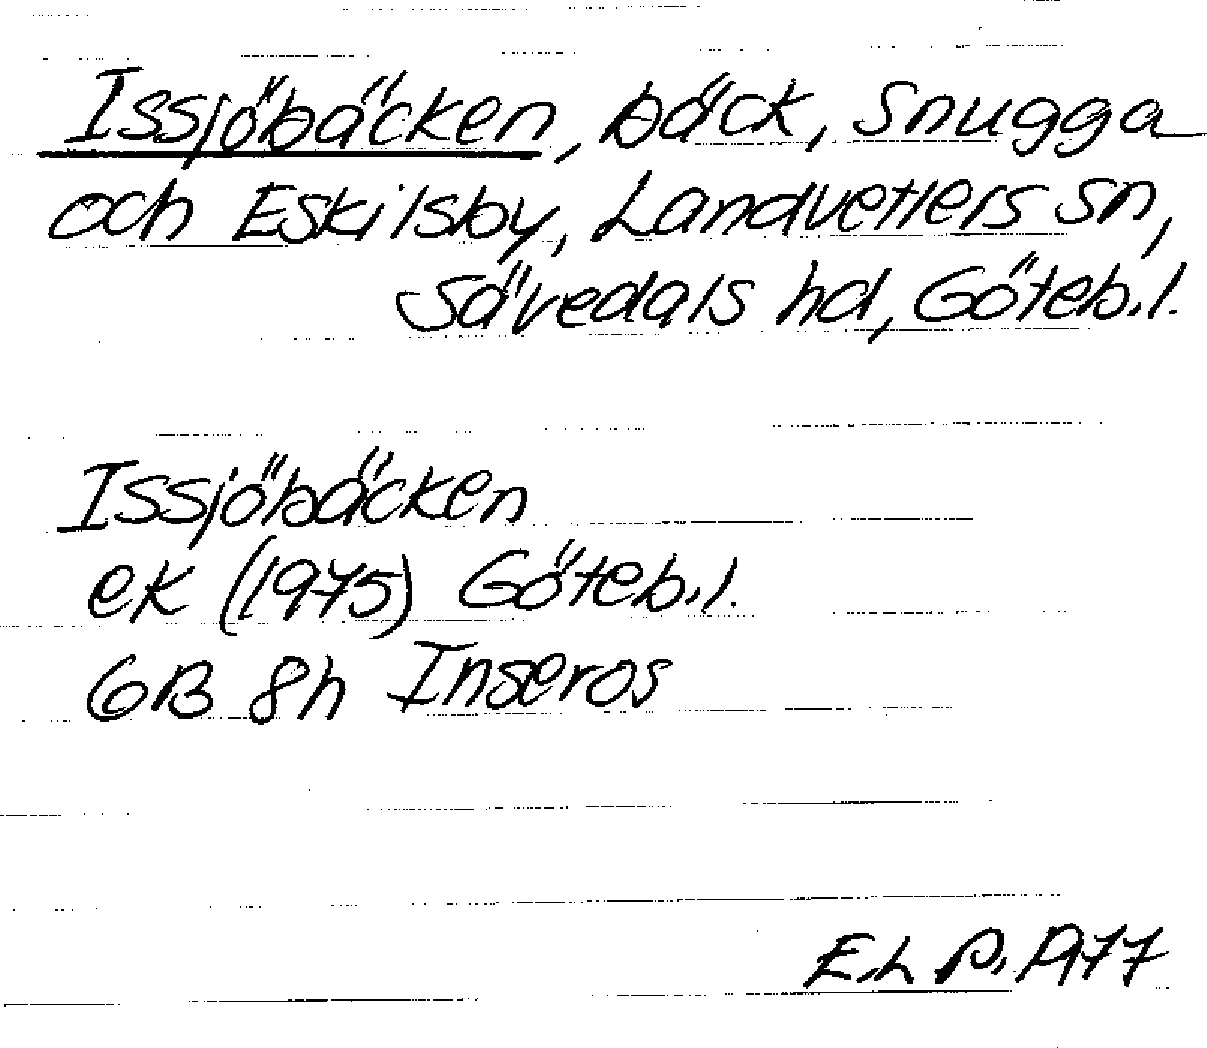 Issjöbäcken, bäck, Snugga
och Eskilsby, Landvetters sn,
Sävedals hd, Göteb.l.
Issjöbäcken
ek (1975) Göteb.l.
6B 8h Inseros
E.L P. 1977